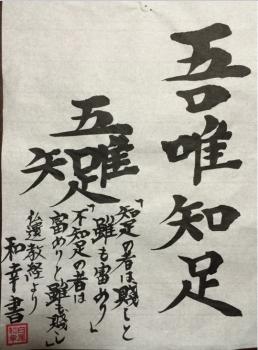 吾唯知足
五隹疋矢口
「知足の者は賤しと
雖も富めり」
「不知足の者は
富めりと雖も賤し」
仏遺教経より
和幸書